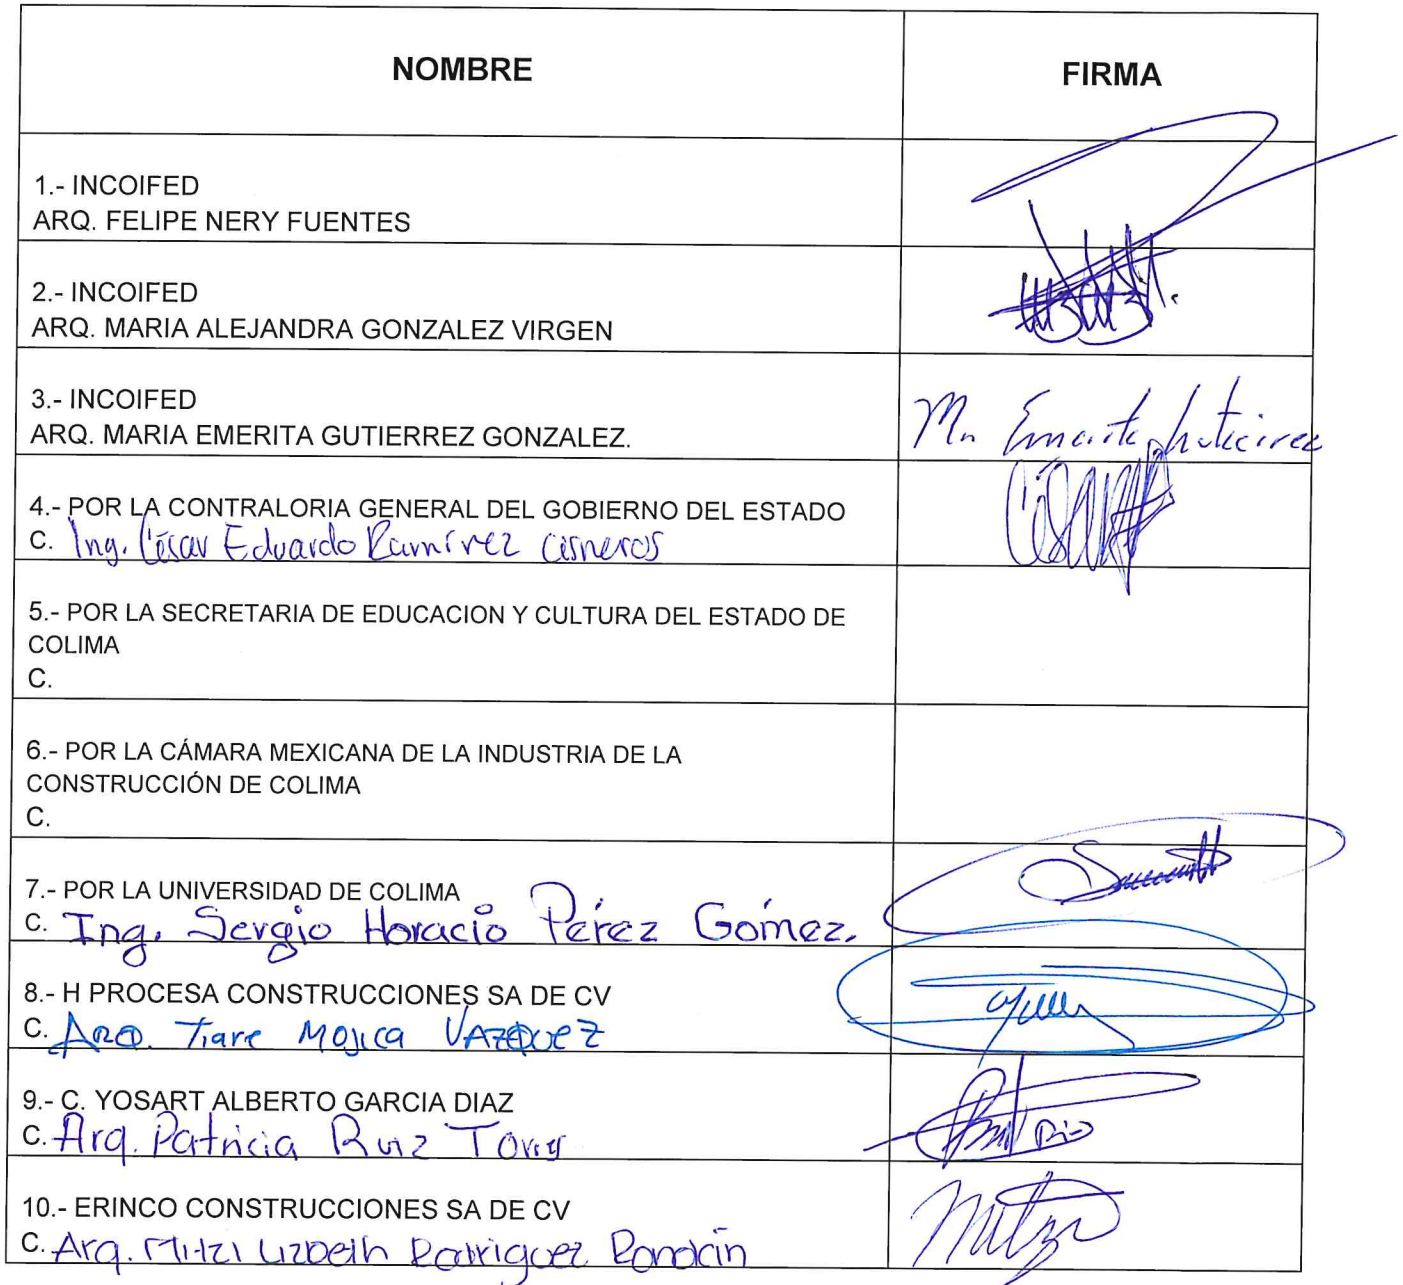 NOMBRE
FIRMA
1.- INCOIFED
ARQ. FELIPE NERY FUENTES
2.- INCOIFED
ARQ. MARIA ALEJANDRA GONZALEZ VIRGEN
3.- INCOIFED
ARQ. MARIA EMERITA GUTIERREZ GONZALEZ.
Ma Emerita Gutierrez
4.- POR LA CONTRALORIA GENERAL DEL GOBIERNO DEL ESTADO
C. Ing. César Eduardo Ramírez Cisneros
5.- POR LA SECRETARIA DE EDUCACION Y CULTURA DEL ESTADO DE
COLIMA
C.
6.- POR LA CÁMARA MEXICANA DE LA INDUSTRIA DE LA
CONSTRUCCIÓN DE COLIMA
C.
7.- POR LA UNIVERSIDAD DE COLIMA
C. Ing. Sergio Horacio Pérez Gómez.
8.- H PROCESA CONSTRUCCIONES SA DE CV
C. ARQ. Tiare Mojica VAZQUEZ
9.- C. YOSART ALBERTO GARCIA DIAZ
C. Arq. Patricia Ruiz Torres
10.- ERINCO CONSTRUCCIONES SA DE CV
C. Arq. Mitzi Lizbeth Rodriguez